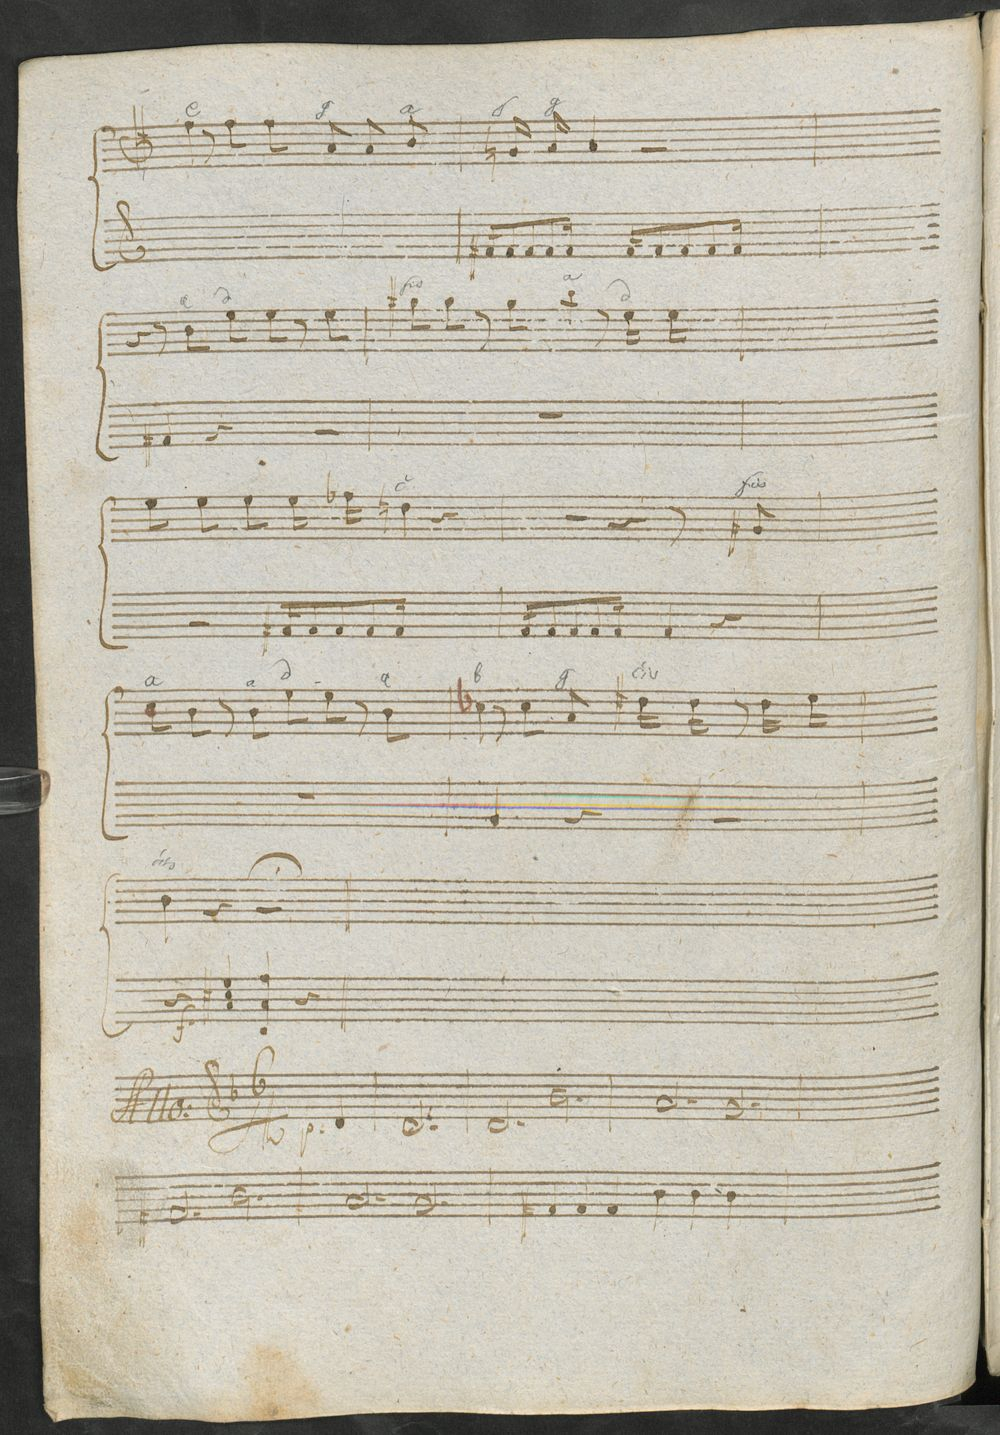 e g a f g
a d fis a d
c fis
a a d a b g cis
cis
f.
Allo: 6 p: